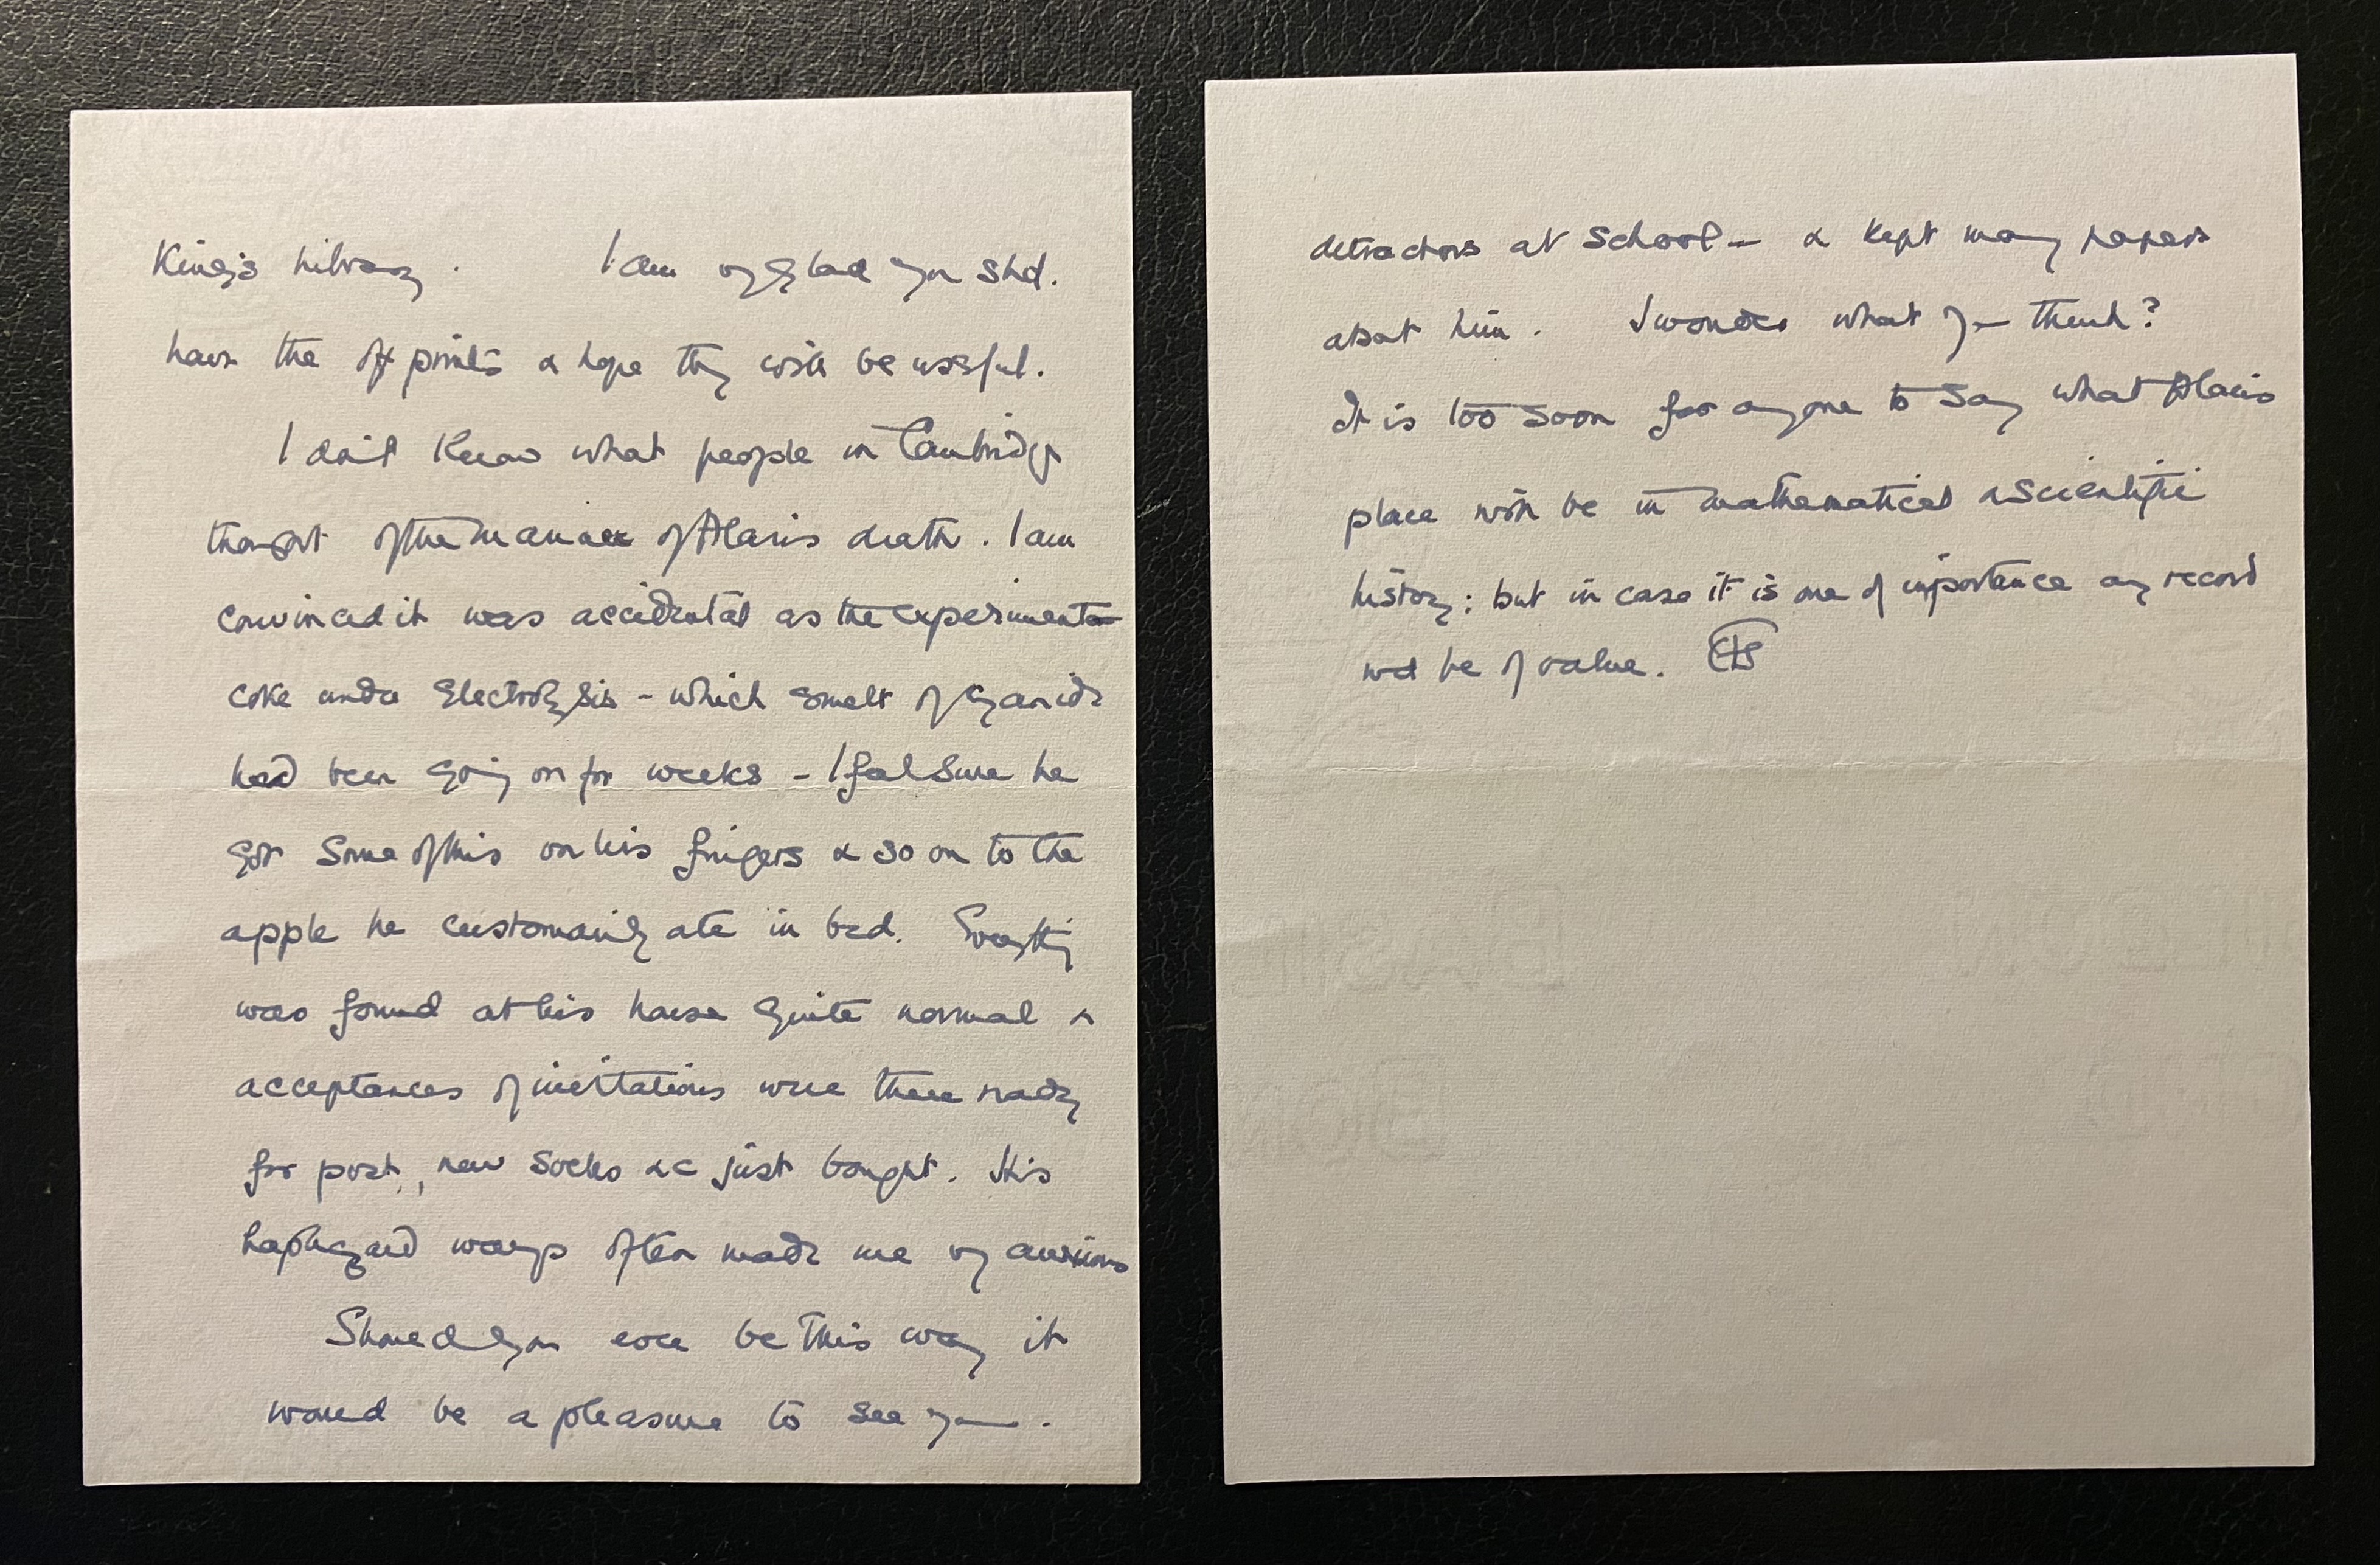 King's Library. I am vy glad you shd.
have the offprints & hope they will be useful.
I don't know what people in Cambridge
thought of the manner of Alan's death. I am
convinced it was accidental as the experiment
coke under Electrolysis - which smelt of Cyanide
had been going on for weeks - I feel sure he
got some of this on his fingers & so on to the
apple he customarily ate in bed. Everything
was found at his house quite normal &
acceptances of invitations were there ready
for post, new socks &c just bought. His
haphazard ways often made me vy anxious
Should you ever be this way it
would be a pleasure to see you.
detractors at school - & kept many papers
about him. I wonder what you think?
It is too soon for anyone to say what Alan's
place will be in mathematical & scientific
history: but in case it is one of importance any record
wd be of value. ES